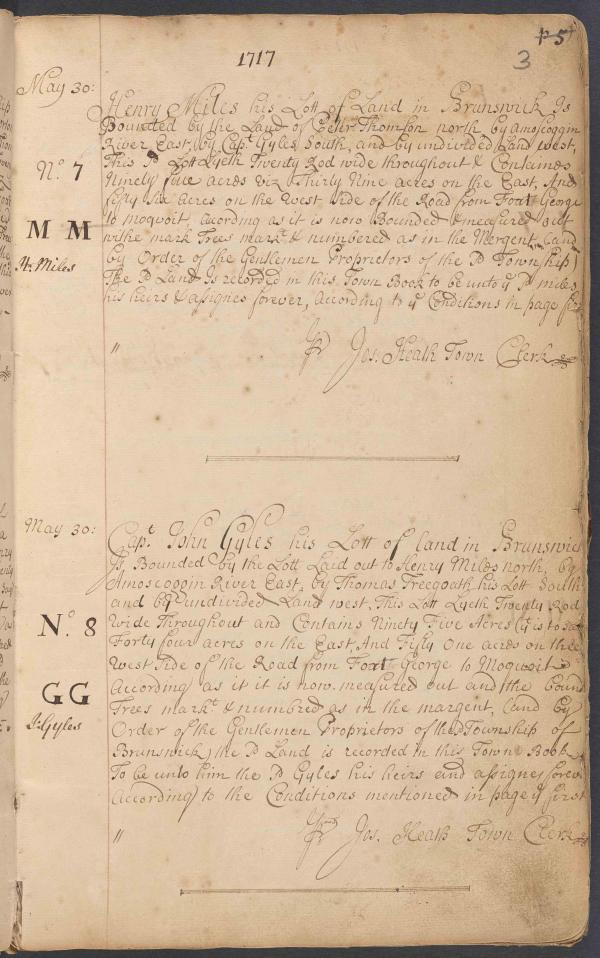 1717
3
May 30:
Henry Miles his Lott of Land in Brunswick Is
Bounded by the Land of Peter Thomson north by amoscoggin
River East, by Capt. Gyles South, and by undivided Land west,
This sd Lott Lyeth Twenty Rod wide throughout & Containes
No. 7
Ninety five acres viz Thirty Nine acres on the East, And
fifty six acres on the West side of the Road from Fort George
to moqwoit, acording as it is now Bounded & measured out
M M
wthe mark Trees markt & numbered as in the Mergent, (and
by Order of the Gentlemen Proprietors of the sd Township)
H: Miles
The sd Land Is recorded in this Town Book to be unto ye sd miles
his heirs & assignes forever, According to ye Conditions in page
"
pr Jos. Heath Town Clerk
May 30:
Capt John Gyles his Lott of land in Brunswick
Is Bounded by the Lott Laid out to Henry Miles north, by
Amoscoggin River East, by Thomas Treegoath his Lott South
and by undivided Land west. This Lott Lyeth Twenty Rod
No. 8
Wide Throughout and Contains Ninety Five Acres (yt is to say
Forty four acres on the East, And Fifty One acres on the
West side of the Road from Fort George to Moqwoit
GG
According as it it is now measured out and the bound
Trees markt & numbred as in the margent, (and by
J: Gyles
Order of the Gentlemen Proprietors of the sd Township of
Brunswick) the sd Land is recorded in this Town Book
To be unto him the sd Gyles his heirs and assignes forever
According to the Conditions mentioned in page ye first
"
pr Jos. Heath Town Clerk